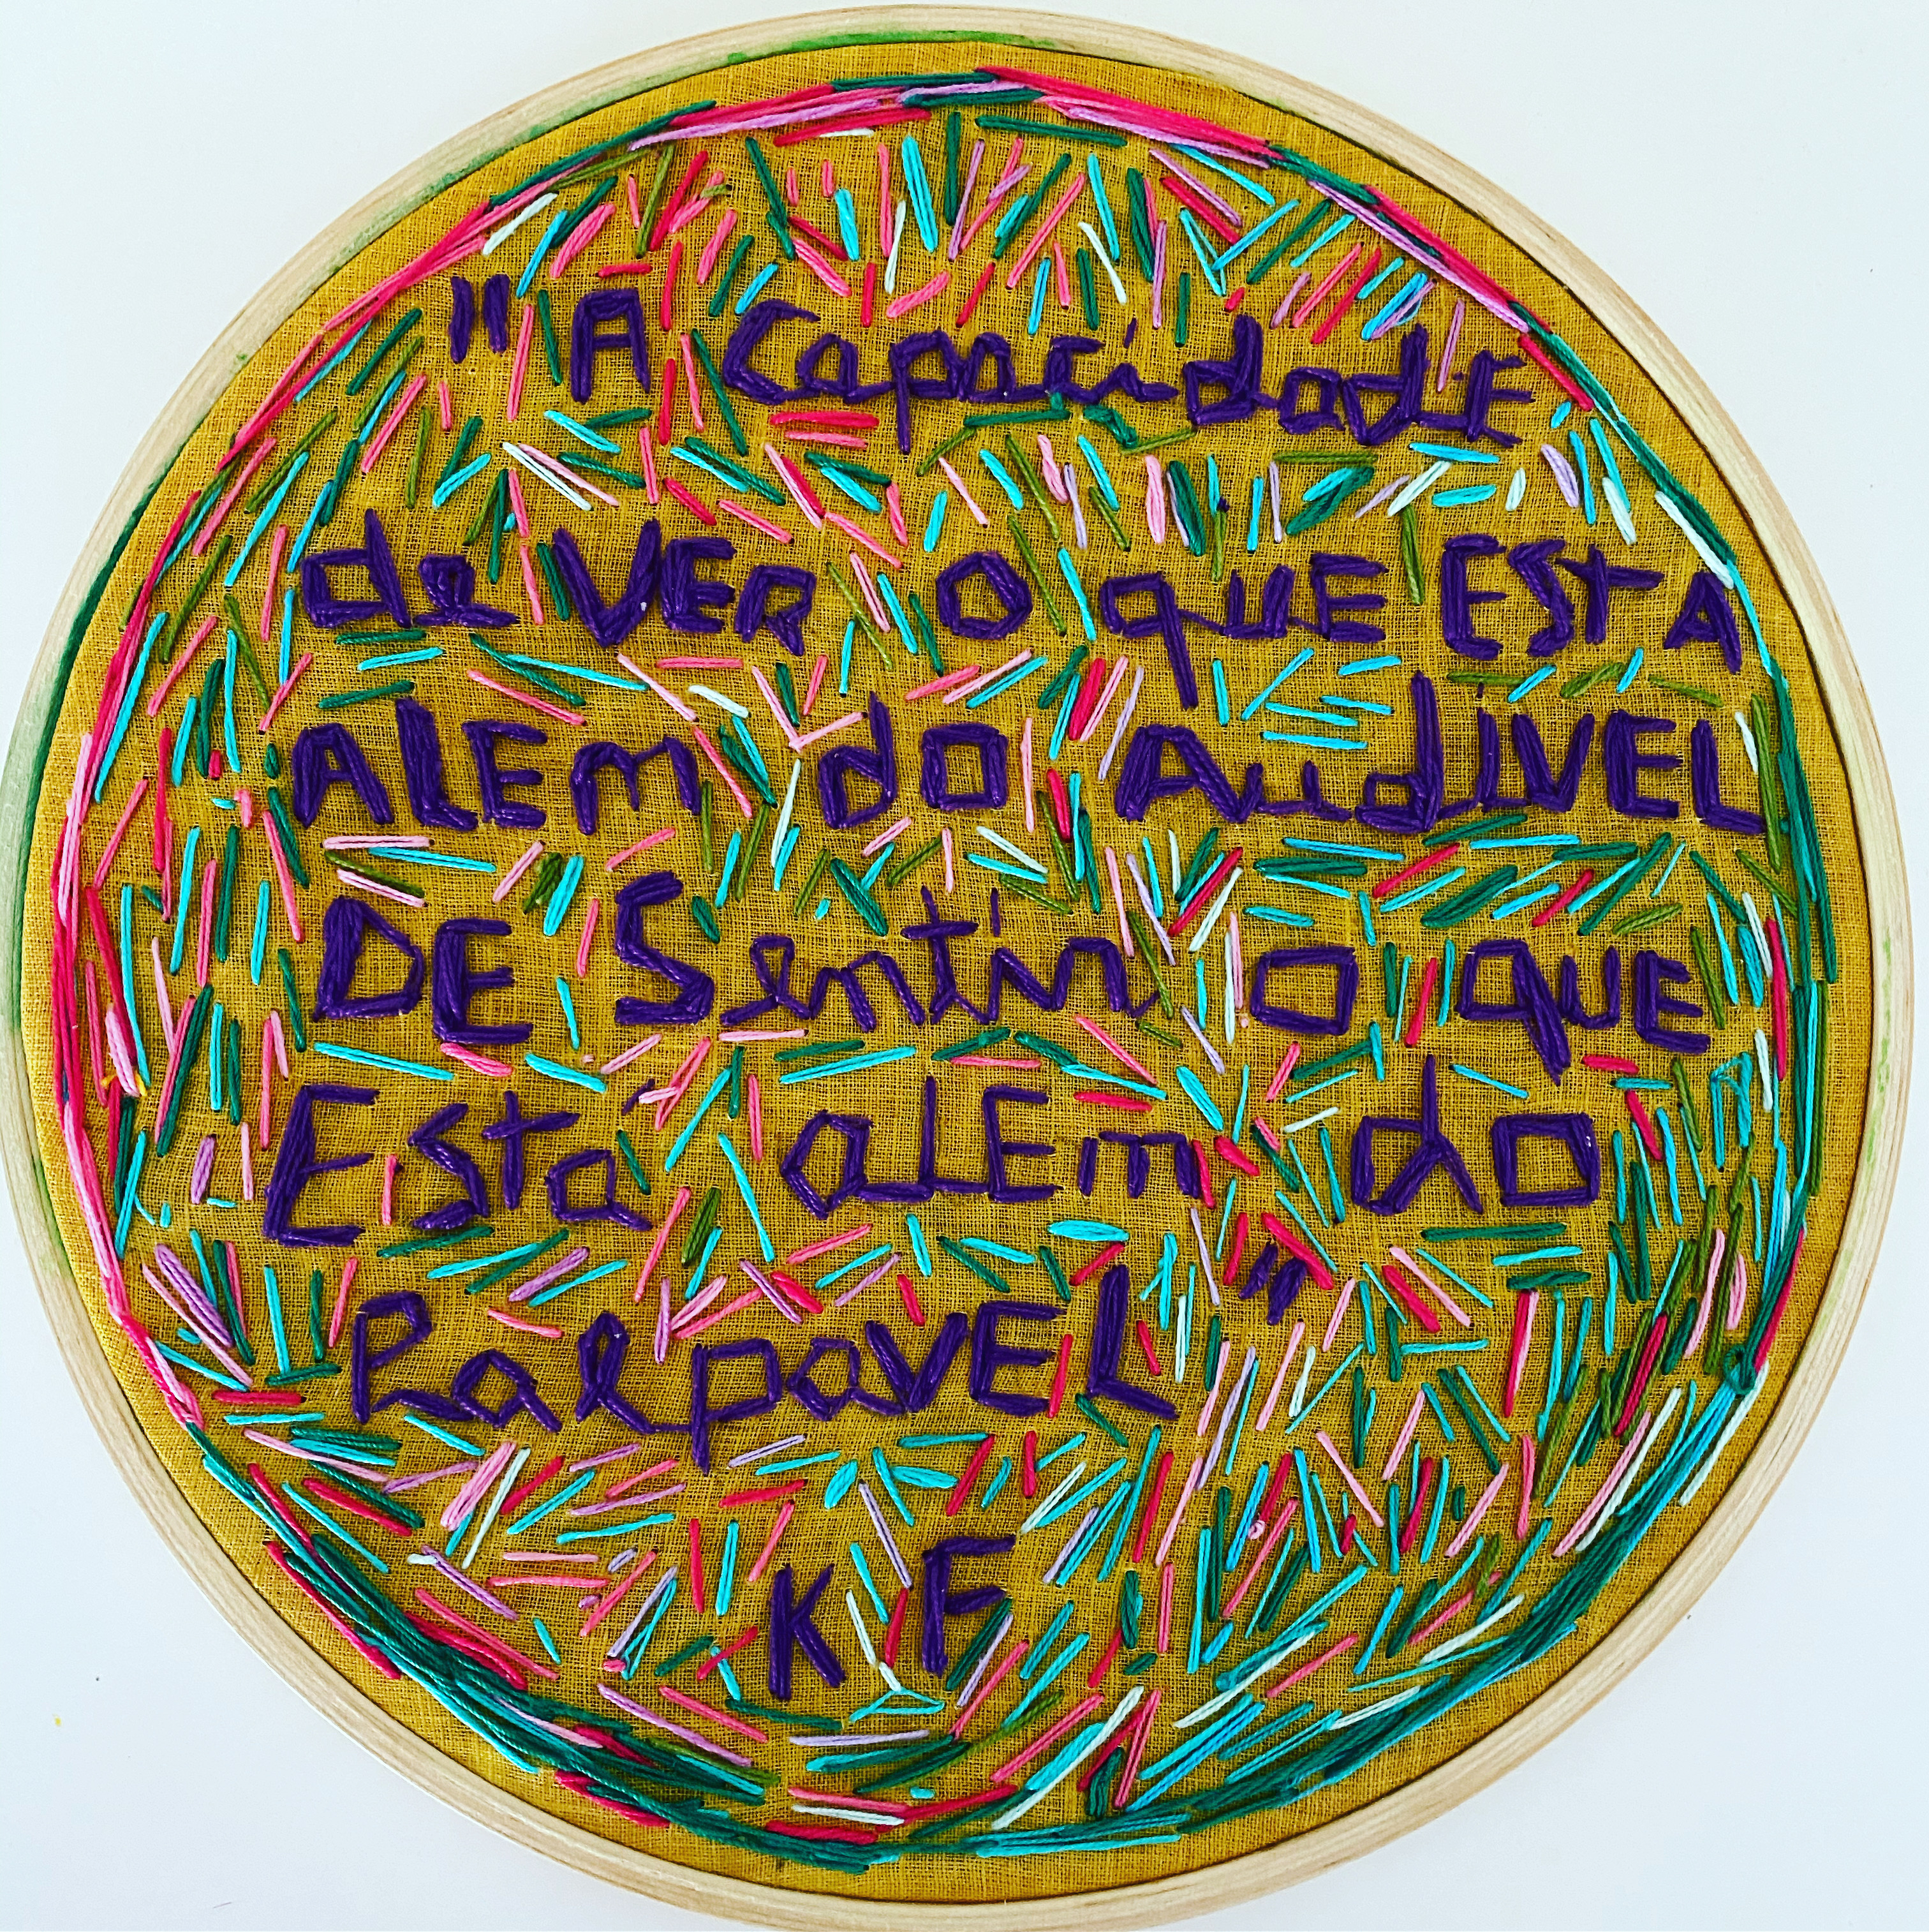 "A Capacidade
de VER o que ESTA
ALEm do AudIVEL
DE Sentir o que
Esta aLEm do
PalpaVEL"
KF